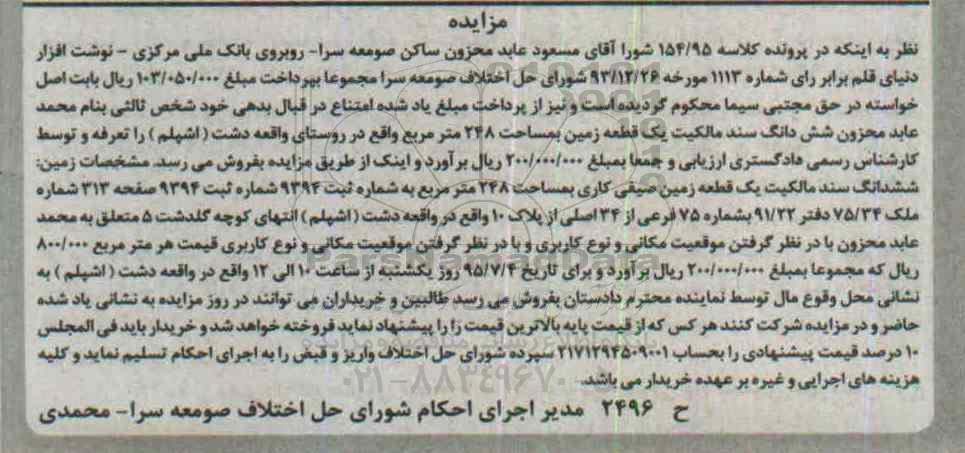 مزایده
نظر به اینکه در پرونده کلاسه ۱۵۴/۹۵ شورا آقای مسعود عابد محزون ساکن صومعه سرا- روبروی بانک ملی مرکزی - نوشت افزار
دنیای قلم برابر رای شماره ۱۱۱۳ مورخه ۹۳/۱۲/۲۶ شورای حل اختلاف صومعه سرا مجموعا بپرداخت مبلغ ۱۰۳/۰۵۰/۰۰۰ ریال بابت اصل
خواسته در حق مجتبی سیما محکوم گردیده است و نیز از پرداخت مبلغ یاد شده امتناع در قبال بدهی خود شخص ثالثی بنام محمد
عابد محزون شش دانگ سند مالکیت یک قطعه زمین بمساحت ۲۴۸ متر مربع واقع در روستای واقعه دشت ( اشپلم ) را تعرفه و توسط
کارشناس رسمی دادگستری ارزیابی و جمعا بمبلغ ۲۰۰/۰۰۰/۰۰۰ ریال برآورد و اینک از طریق مزایده بفروش می رسد. مشخصات زمین:
ششدانگ سند مالکیت یک قطعه زمین صیفی کاری بمساحت ۲۴۸ متر مربع به شماره ثبت ۹۳۹۴ شماره ثبت ۹۳۹۴ صفحه ۳۱۳ شماره
ملک ۷۵/۳۴ دفتر ۹۱/۲۲ بشماره ۷۵ فرعی از ۳۴ اصلی از پلاک ۱۰ واقع در واقعه دشت ( اشپلم ) انتهای کوچه گلدشت ۵ متعلق به محمد
عابد محزون با در نظر گرفتن موقعیت مکانی و نوع کاربری و با در نظر گرفتن موقعیت مکانی و نوع کاربری قیمت هر متر مربع ۸۰۰/۰۰۰
ریال که مجموعا بمبلغ ۲۰۰/۰۰۰/۰۰۰ ریال برآورد و برای تاریخ ۹۵/۷/۴ روز یکشنبه از ساعت ۱۰ الی ۱۲ واقع در واقعه دشت ( اشپلم ) به
نشانی محل وقوع مال توسط نماینده محترم دادستان بفروش می رسد طالبین و خریداران می توانند در روز مزایده به نشانی یاد شده
حاضر و در مزایده شرکت کنند هر کس که از قیمت پایه بالاترین قیمت را را پیشنهاد نماید فروخته خواهد شد و خریدار باید فی المجلس
۱۰ درصد قیمت پیشنهادی را بحساب ۲۱۷۱۲۹۴۵۰۹۰۰۱ سپرده شورای حل اختلاف واریز و قبض را به اجرای احکام تسلیم نماید و کلیه
هزینه های اجرایی و غیره بر عهده خریدار می باشد.
ح ۲۴۹۶ مدیر اجرای احکام شورای حل اختلاف صومعه سرا- محمدی
ParsNamadData
۰۲۱-۸۸۳۴۹۶۷۰